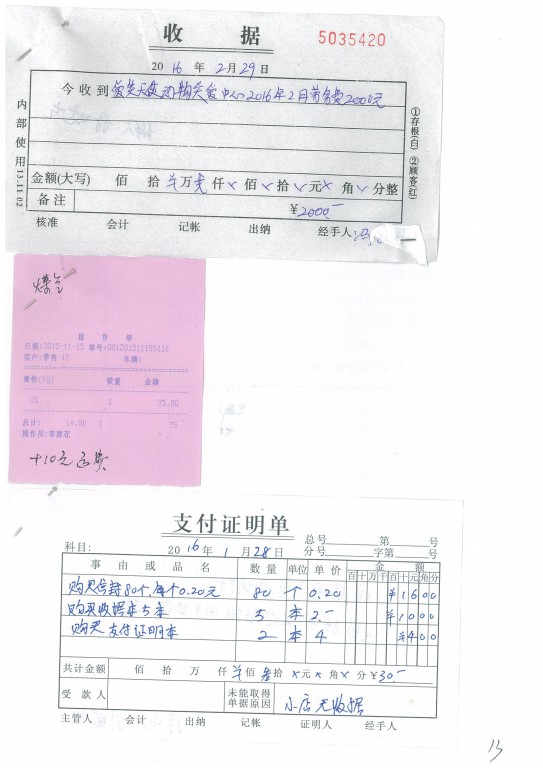 收 据
5035420
2016 年 2 月 29 日
今 收 到 爱中心2016年2月劳务费2000元
金额(大写) 佰 拾 万 仟 佰 拾 元 角 分整
备 注 ￥2000.-
核准 会计 记帐 出纳 经手人:
内部使用 13.11.02
①存根(白) ②顾客(红)
煤气
提 货 单
日期:2015-11-15 单号:001201511155116
客户:零售-15 车辆:
规格(kg) 数量 金额
15 1 75.00
总计: 14.50 1 75
操作员:李源花
+10元运费
支付证明单
总号 第 号
科目: 2016 年 1 月 28 日 分号 字第 号
事 由 或 品 名 数 量 单位 单 价 金 额
百 十 万 千 百 十 元 角 分
购买信封80个,每个0.20元 80 个 0.20 ￥1600
购买收据本5本 5 本 2.- ￥1000
购买支付证明本 2 本 4 ￥400
共计金额 佰 拾 万 仟 佰 叁拾 x元 x 角 x 分 ￥30.-
受 款 人 未能取得单据原因 小店无收据
主管人 会计 出纳 记帐 证明人 经手人
13